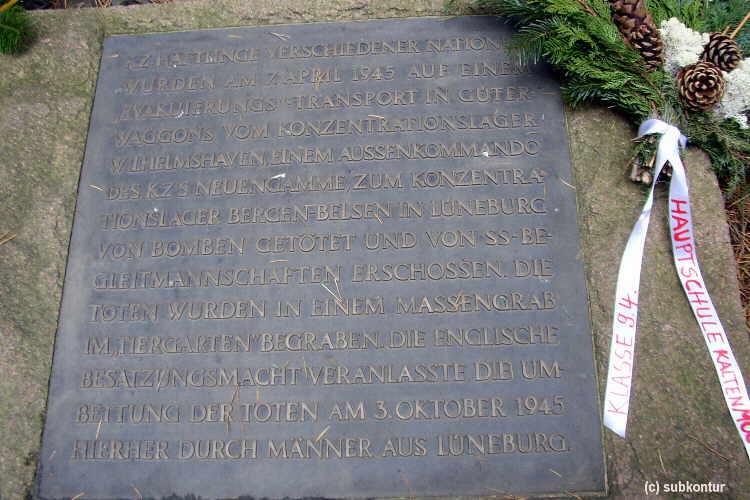 KZ-HÄFTLINGE VERSCHIEDENER NATION
WURDEN AM 7. APRIL 1945 AUF EINEM
„EVAKUIERUNGS"-TRANSPORT IN GÜTER-
WAGGONS VOM KONZENTRATIONSLAGER
WILHELMSHAVEN, EINEM AUSSENKOMMANDO
DES KZ'S NEUENGAMME ZUM KONZENTRA-
TIONSLAGER BERGEN-BELSEN IN LÜNEBURG
VON BOMBEN GETÖTET UND VON SS-BE-
GLEITMANNSCHAFTEN ERSCHOSSEN. DIE
TOTEN WURDEN IN EINEM MASSENGRAB
IM „TIERGARTEN" BEGRABEN. DIE ENGLISCHE
BESATZUNGSMACHT VERANLASSTE DIE UM-
BETTUNG DER TOTEN AM 3. OKTOBER 1945
HIERHER DURCH MÄNNER AUS LÜNEBURG.
KLASSE 9.4.
HAUPTSCHULE KALTENMO
(c) subkontur